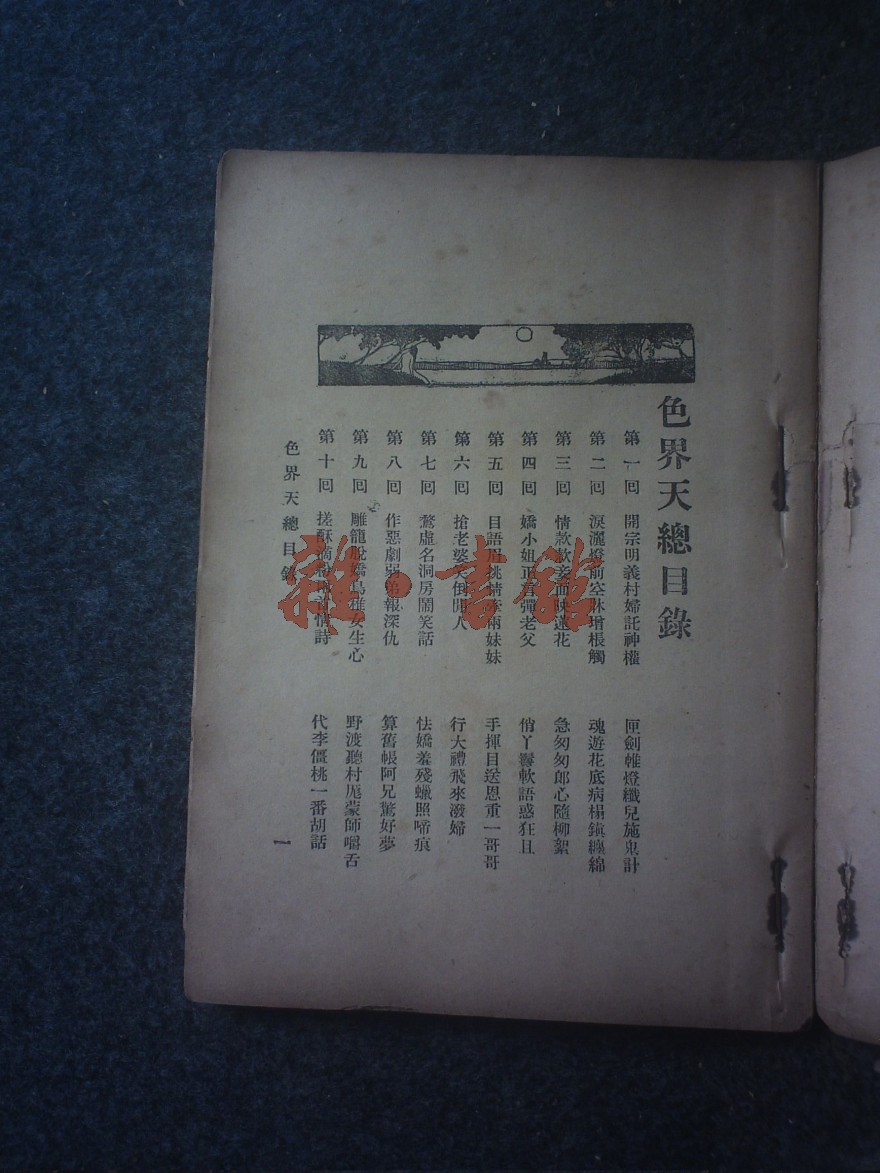 色界天總目錄
第一回 開宗明義村婦託神權 匣劍帷燈纖兒施鬼計
第二回 淚灑燈前空牀增棖觸 魂遊花底病榻鎮纏綿
第三回 情款款妾面映蓮花 急匆匆郎心隨柳絮
第四回 嬌小姐正言彈老父 俏丫鬟軟語惑狂且
第五回 目語眉挑情牽兩妹妹 手揮目送恩重一哥哥
第六回 搶老婆笑倒閒人 行大禮飛來潑婦
第七回 騖虛名洞房鬧笑話 怯嬌羞殘蠟照啼痕
第八回 作惡劇弱弟報深仇 算舊帳阿兄驚好夢
第九回 雕籠脫嬌鳥雅女生心 野渡聽村厖蒙師嚼舌
第十回 搓酥滴粉 首情詩 代李僵桃一番胡話
色界天總目錄
一
雜·書館